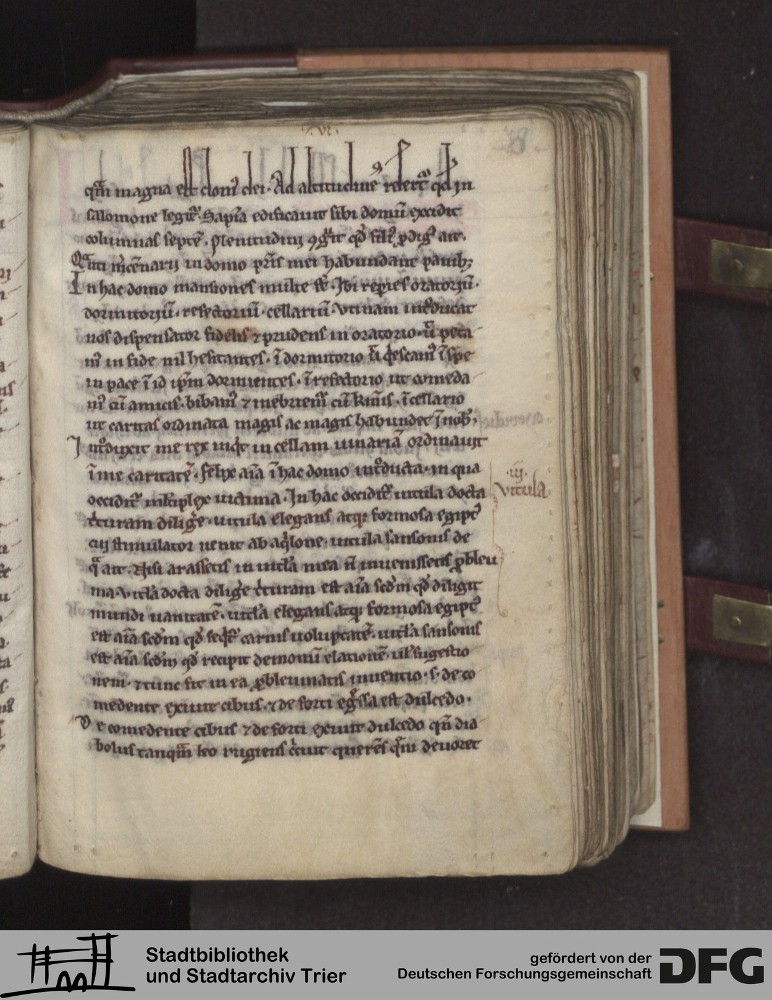 .VI.
qm̄ magna est dom' dei. Ad altitudinē refert' qd in
salomone legit'. Sapīa edificauit sibi domū excidit
columnas septē. plenitudinį ꝯgruit qd fili' ꝓdig' ait.
Qͣnti m̄cēnarij in domo pr̄is mei habundant panib;
In hac domo mansiones multe st̄. Ibi reperies oratoriū.
dormitoriū. refectoriū. cellariū. Vtinam int̄ducat
nos dispensator fidelis ⁊ prudens in oratorio. ut peta
m' in fide nil hesitantes. ī dormitorio ut q̇escam' ī spe
in pace ī id ip̄m dormientes. ī refectorio ut comeda
m' cū amicis. bibam' ⁊ inebriem' cū karis. ī cellario
ut caritas ordinata magis ac magis habundet ī nob;
Int̄duxit me rex inq̇t in cellam uinariā ordinauit
ī me caritatē. felix aīa ī hac domo int̄ducta. in qua
occidit' multiplex uictima. In hac occidit' uitula docta
t̄turam diliḡe. uitula elegans atq; formosa egipt'
cuį stimulator uenit ab aq̇lone. uitula sansonis de
qͣ ait. Nisi arassetis in uitl̄a mea n̄ inuenissetis ꝓbleu
ma. Vitl̄a docta diliḡe t̄turam est aīa sedm qd diligit
mundi uanitatē. uitl̄a elegans atq; formosa egipt'
est aīa sedm qd seq̇t' carnis uoluptatē. uitl̄a sansonis
est aīa sedm qd recipit demonū elationē. ul' sugestio
nem. ⁊ tunc fit in ea ꝓbleumatis inuentio. s. de co
medente exiuit cibus. ⁊ de forti egr̄ssa est dulcedo.
De comedente cibus ⁊ de forti exiuit dulcedo qn̄ dia
bolus tanqm̄ leo rugiens c̄cuit querēs qm̄ deuoret
.iij.
Vitula
Stadtbibliothek
und Stadtarchiv Trier
gefördert von der
Deutschen Forschungsgemeinschaft
DFG